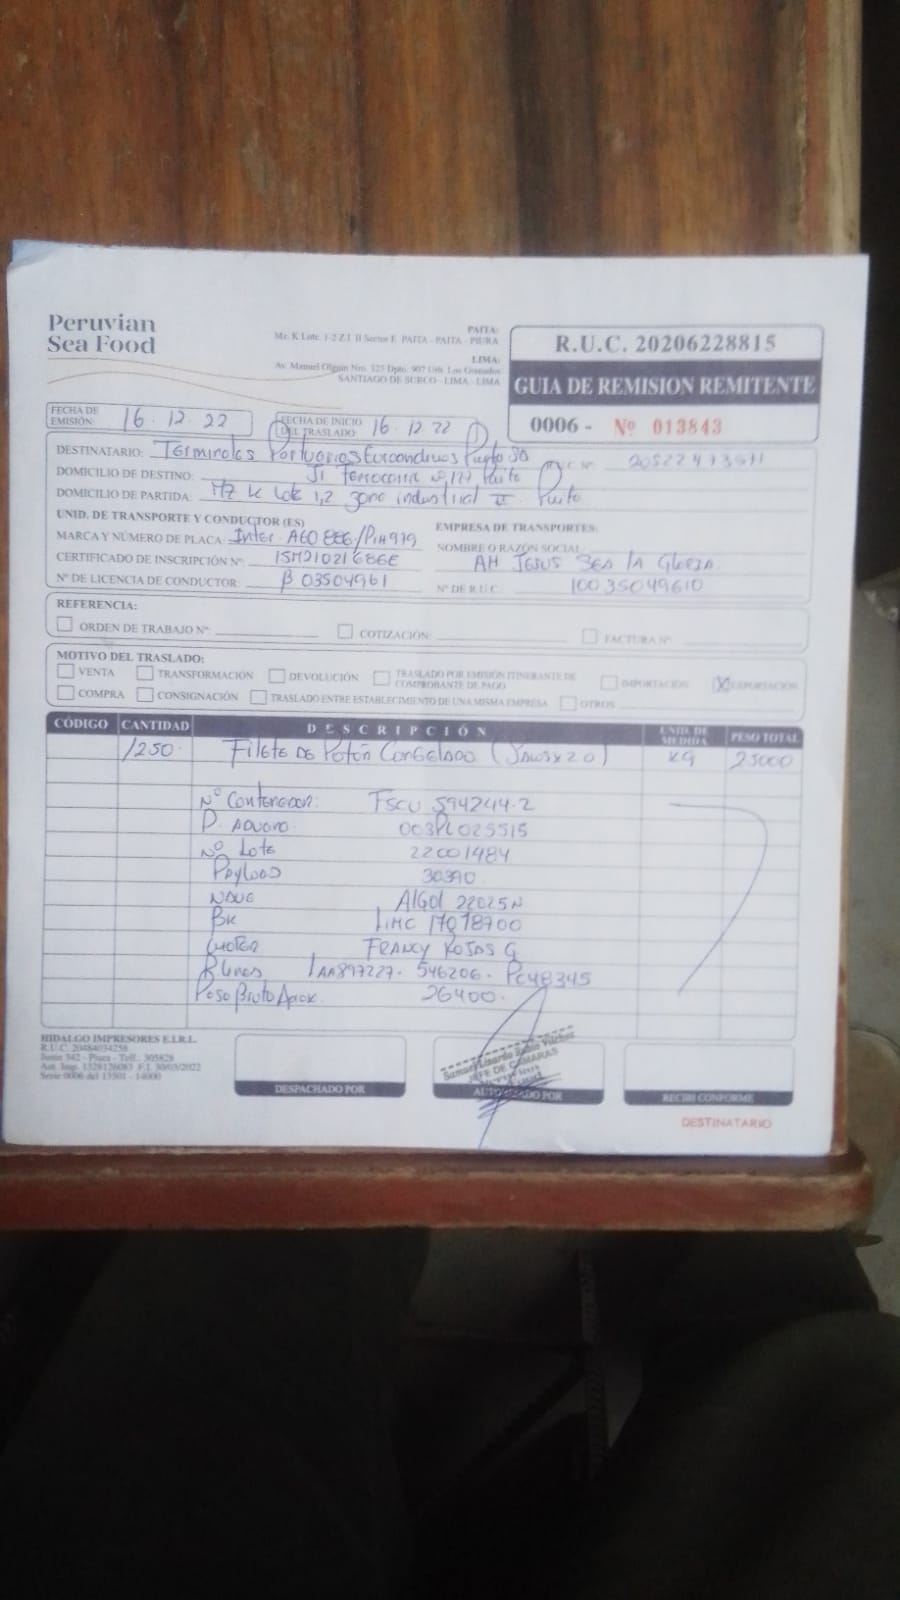 Peruvian
Sea Food
PAITA:
Mz. K Lote. 1-2 Z.I. II Sector E PAITA - PAITA - PIURA
LIMA:
Av. Manuel Olguin Nro. 325 Dpto. 907 Urb. Los Granados
SANTIAGO DE SURCO - LIMA - LIMA
R.U.C. 20206228815
GUIA DE REMISION REMITENTE
0006 - Nº 013843
FECHA DE EMISIÓN: 16 . 12 . 22
FECHA DE INICIO DEL TRASLADO: 16 . 12 . 22
DESTINATARIO: Terminales Portuarios Euroandinos Paita SA
DOMICILIO DE DESTINO: Jr Ferrocarril Nº 127 Paita
DOMICILIO DE PARTIDA: Mz K Lote 1,2 zona industrial II Paita
UNID. DE TRANSPORTE Y CONDUCTOR (ES)
EMPRESA DE TRANSPORTES:
MARCA Y NÚMERO DE PLACA: Inter. A60 886 /
NOMBRE O RAZÓN SOCIAL: AH JESUS SEA LA GLORIA
CERTIFICADO DE INSCRIPCIÓN Nº: 15M21021686E
Nº DE LICENCIA DE CONDUCTOR: B 03504961
Nº DE R.U.C. 10035049610
REFERENCIA:
ORDEN DE TRABAJO Nº: COTIZACIÓN: FACTURA Nº
MOTIVO DEL TRASLADO:
VENTA TRANSFORMACIÓN DEVOLUCIÓN TRASLADO POR EMISIÓN ITINERANTE DE COMPROBANTE DE PAGO IMPORTACIÓN X EXPORTACIÓN
COMPRA CONSIGNACIÓN TRASLADO ENTRE ESTABLECIMIENTO DE UNA MISMA EMPRESA OTROS
CÓDIGO CANTIDAD DESCRIPCIÓN UNID. DE MEDIDA PESO TOTAL
1250 Filete de Potón Congelado x 20) KG 25000
Nº Contenedor: FSCU 594244-2
P. Aduana 003PL025515
Nº Lote 22001484
Payload 30390
Nave Algol 22025N
BK
FRANCY ROJAS G
546206.
Peso Bruto Aprox. 26400.
HIDALGO IMPRESORES E.I.R.L.
R.U.C. 20484034258
Junin 342 - Piura - Telf.: 305828
Aut. Imp. 1328126083 F.I. 30/03/2022
Serie 0006 del 13501 - 14000
JEFE DE CAMARAS
DESPACHADO POR
AUTORIZADO POR
RECIBI CONFORME
DESTINATARIO